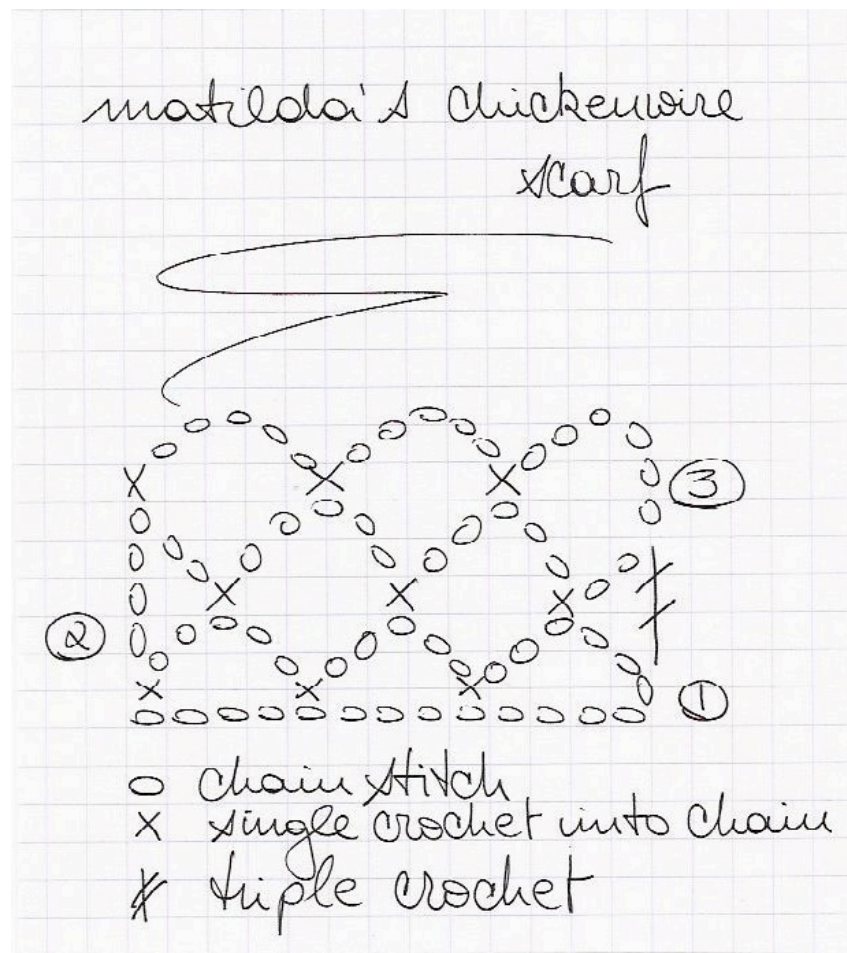 matilda's chickenwire
scarf
3
2
1
chain stitch
single crochet into chain
triple crochet